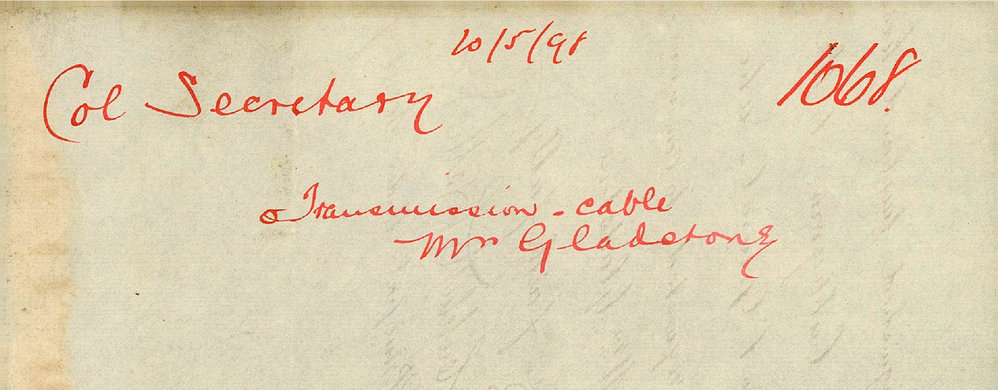 20/5/98
1068.
Col Secretary
Transmission - cable
Mr Gladstone